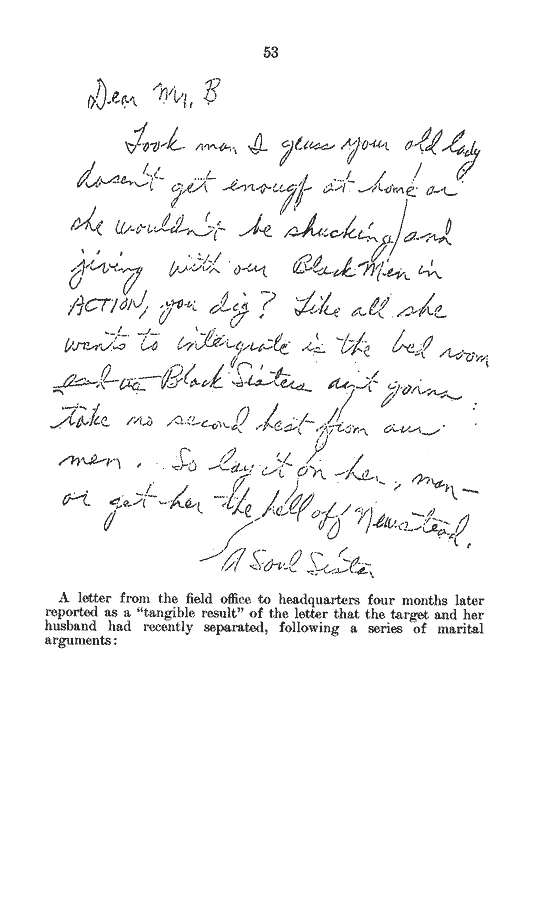 53
Dear Mr. B
Look man I geuss your old lady
doesen't get enougf at home or
she wouldn't be shucking and
jiving with our Black Men in
ACTION, you dig? Like all she
wants to intergrate is the bed room
and us Black Sisters ain't gonna
take no second best from our
men. So lay it on her, man—
or get her the hell off Newstead.
A Soul Sister
A letter from the field office to headquarters four months later
reported as a "tangible result" of the letter that the target and her
husband had recently separated, following a series of marital
arguments: